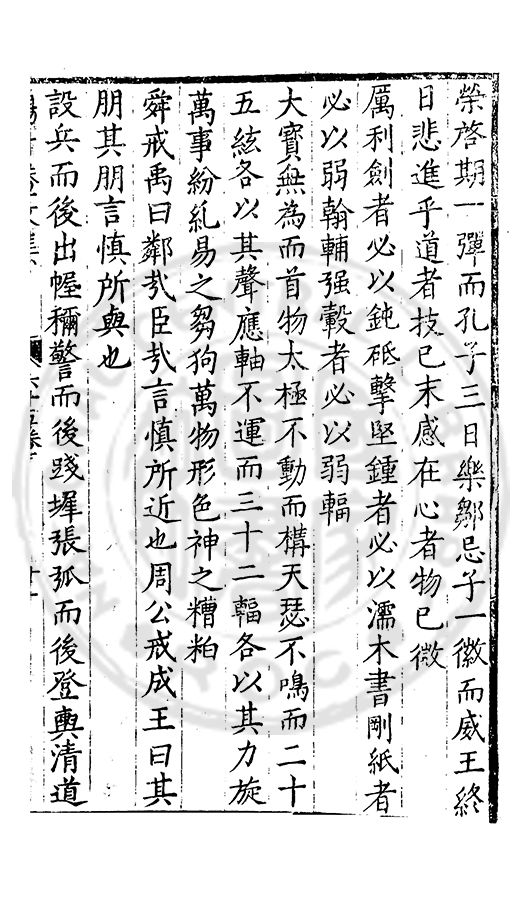 榮啓期一彈而孔子三日樂鄒忌子一徽而威王終
日悲進乎道者技已末感在心者物已微
厲利劍者必以鈍砥擊堅鍾者必以濡木書剛紙者
必以弱翰輔强轂者必以弱輻
大寶無為而首物太極不動而構天瑟不鳴而二十
五絃各以其聲應軸不運而三十二輻各以其力旋
萬事紛糺易之芻狗萬物形色神之糟粕
舜戒禹曰鄰哉臣哉言慎所近也周公戒成王曰其
朋其朋言慎所與也
設兵而後出幄稱警而後踐墀張弧而後登輿清道